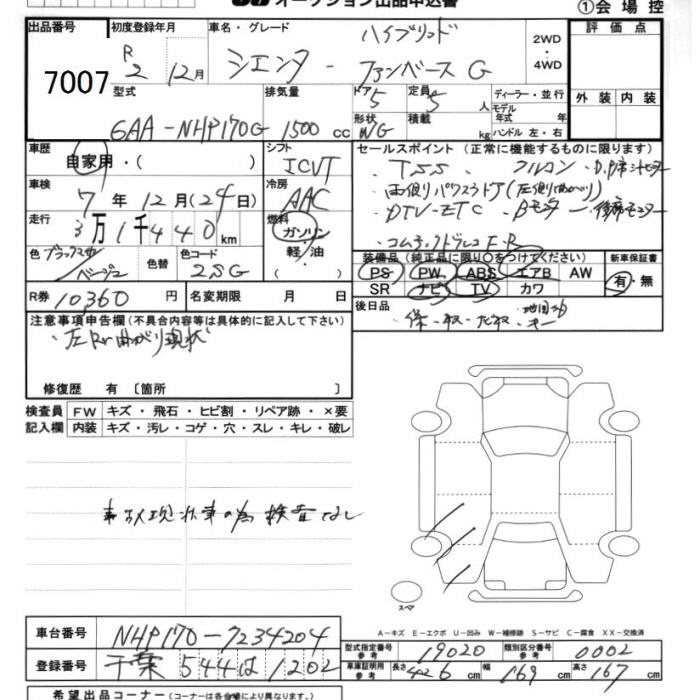 オークション出品申込書 ①会場控
出品番号 初度登録年月 車名・グレード ハイブリッド 2WD・4WD 評価点
7007 R2 12月 シエンタ - ファンベース G
型式 排気量 ドア 5 定員 5人 ディーラー・並行 外装 内装
6AA-NHP170G 1500cc 形状 WG 積載 kg モデル年式 年 ハンドル 左・右
車歴 シフト セールスポイント (正常に機能するものに限ります)
自家用・( ) ICVT ・TSS ・フルコン
車検 7年12月(24日) 冷房 AAC ・両側パワスラドア(左側曲がり)
走行 3万1千440km 燃料 ガソリン・軽油・( ) ・DTV-ETC
色 ブラックマイカ ベージュ 色替 色コード 2SG
装備品 (純正品に限り○をつけてください) 新車保証書
PS PW ABS エアB AW 有・無
SR ナビ TV カワ
R券 10360円 名変期限 月 日 後日品
注意事項申告欄(不具合内容等は具体的に記入して下さい)
・左Rドア曲がり現状
修復歴 有 〔箇所 〕
検査員 FW キズ・飛石・ヒビ割・リペア跡・×要
記入欄 内装 キズ・汚レ・コゲ・穴・スレ・キレ・破レ
事故現状車の為検査なし
スペア
A-キズ E-エクボ U-凹み W-補修跡 S-サビ C-腐食 XX-交換済
車台番号 NHP170-7234204
型式指定番号 参考 19020 類別区分番号 参考 0002
登録番号 千葉544は1202
車庫証明用 参考 長さ 426cm 幅 169cm 高さ 167cm
希望出品コーナー